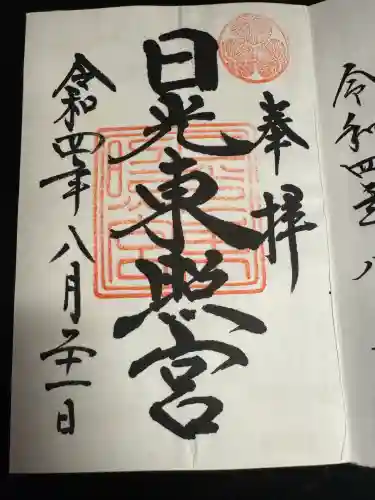 奉拝
日光東照宮
令和四年八月二十一日
令和四年八